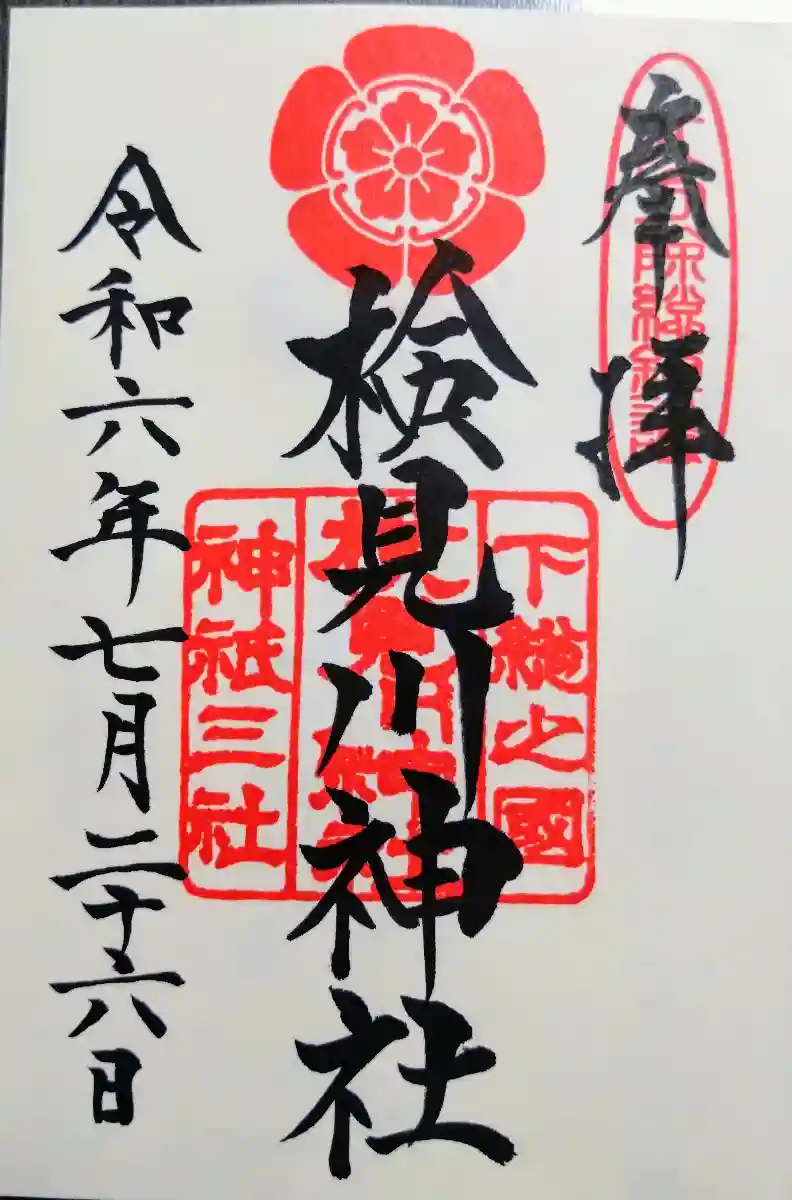 奉拝
検見川神社
下總之國
神祇三社
令和六年七月二十六日